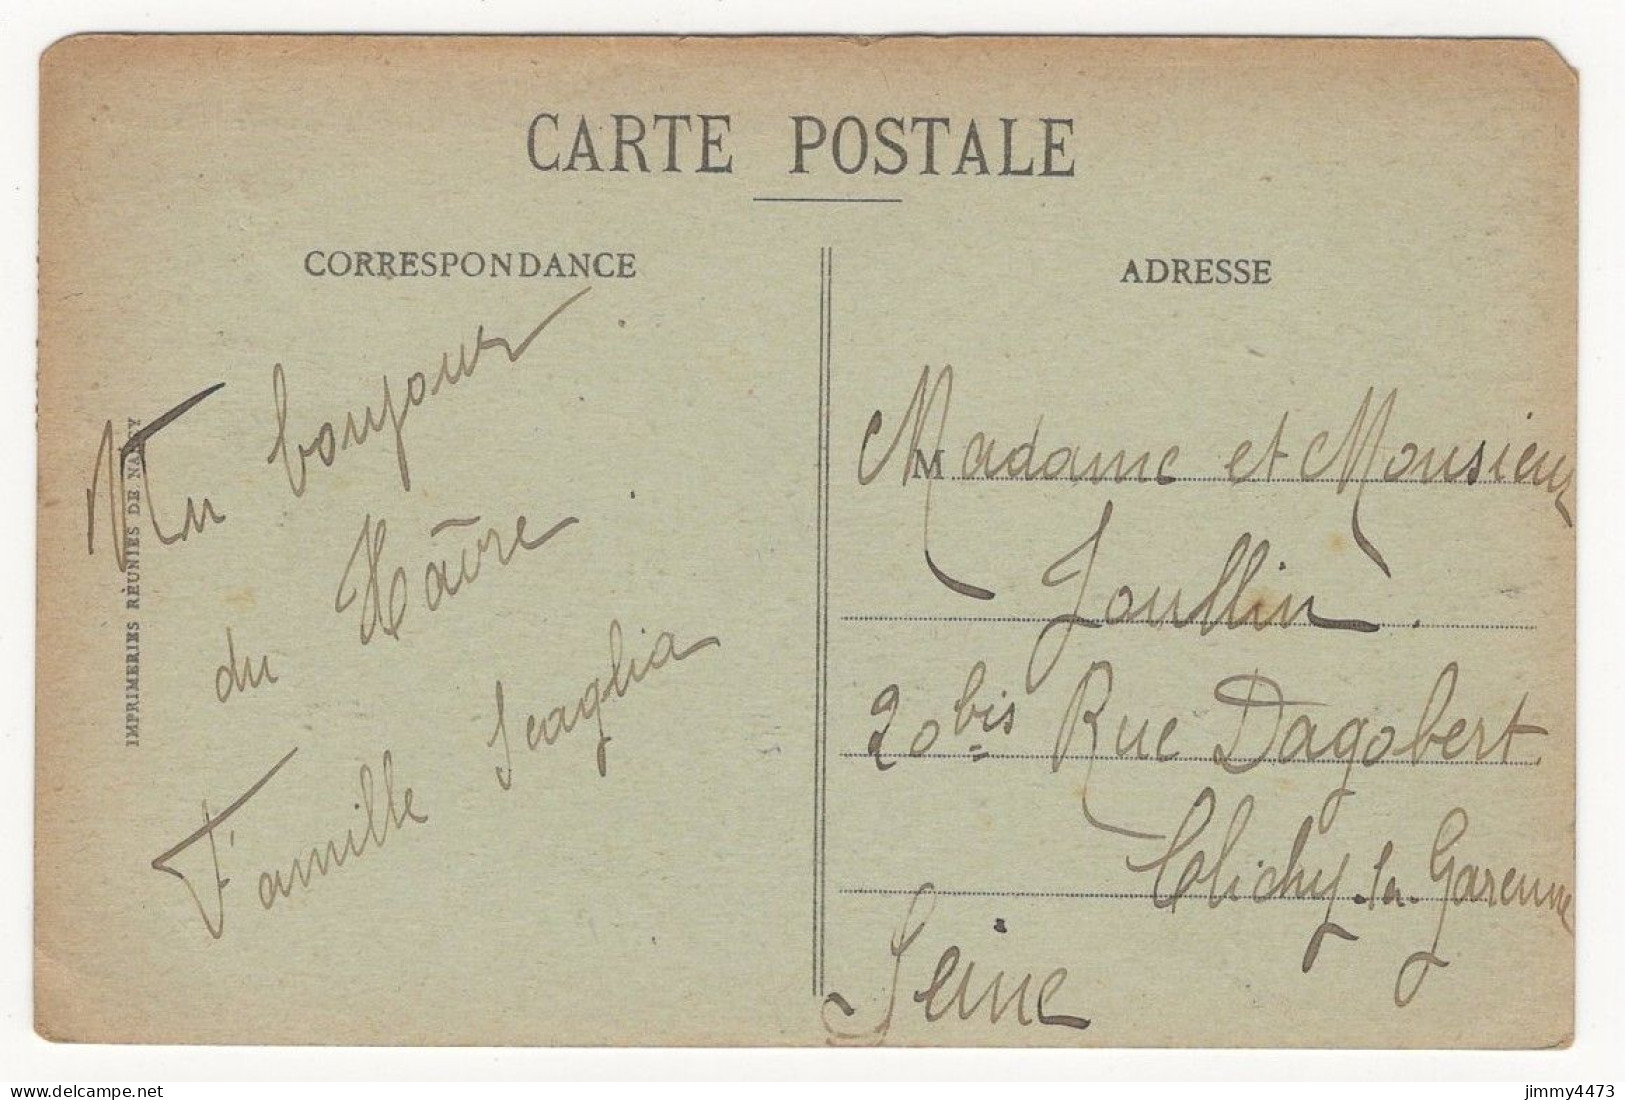 CARTE POSTALE
CORRESPONDANCE
ADRESSE
Un bonjour
du Hâvre
Famille Scaglia
IMPRIMERIES RÉUNIES DE NANCY
M
Madame et Monsieur
Joullin.
20 bis Rue Dagobert
Clichy-la-Garenne
Seine
jimmy4473